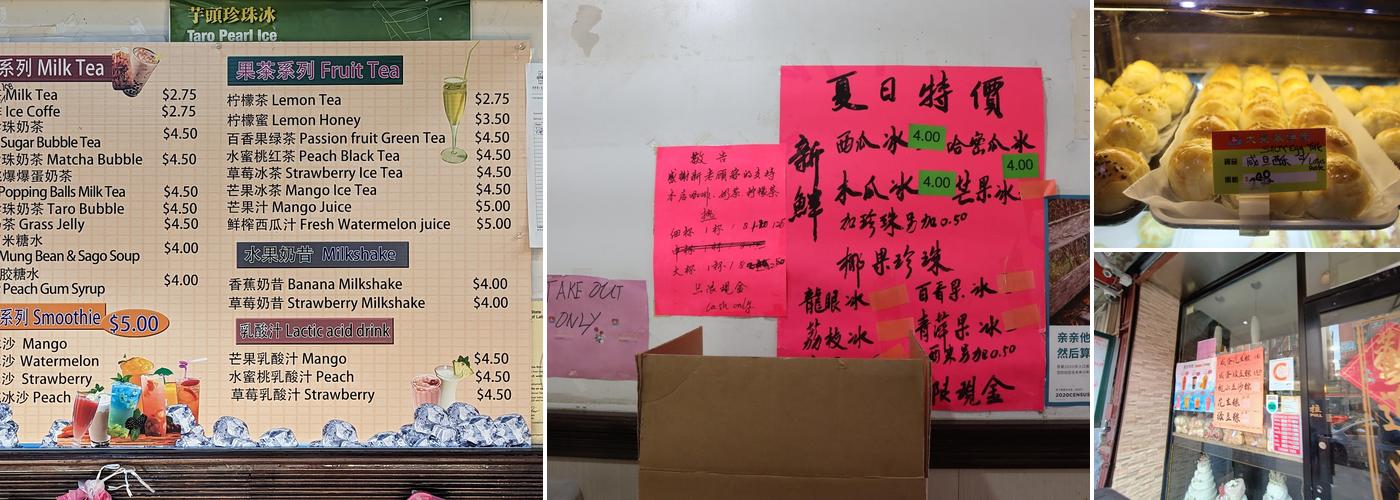 芋頭珍珠冰
Taro Pearl Ice
系列 Milk Tea
Milk Tea $2.75
Ice Coffe $2.75
珠奶茶
Sugar Bubble Tea $4.50
珠奶茶 Matcha Bubble $4.50
爆爆蛋奶茶
Popping Balls Milk Tea $4.50
珠奶茶 Taro Bubble $4.50
茶 Grass Jelly $4.50
米糖水
Mung Bean & Sago Soup $4.00
胶糖水
Peach Gum Syrup $4.00
系列 Smoothie $5.00
沙 Mango
沙 Watermelon
沙 Strawberry
冰沙 Peach
果茶系列 Fruit Tea
柠檬茶 Lemon Tea $2.75
柠檬蜜 Lemon Honey $3.50
百香果绿茶 Passion fruit Green Tea $4.50
水蜜桃红茶 Peach Black Tea $4.50
草莓冰茶 Strawberry Ice Tea $4.50
芒果冰茶 Mango Ice Tea $4.50
芒果汁 Mango Juice $5.00
鲜榨西瓜汁 Fresh Watermelon juice $5.00
水果奶昔 Milkshake
香蕉奶昔 Banana Milkshake $4.00
草莓奶昔 Strawberry Milkshake $4.00
乳酸汁 Lactic acid drink
芒果乳酸汁 Mango $4.50
水蜜桃乳酸汁 Peach $4.50
草莓乳酸汁 Strawberry $4.50
TAKE OUT
ONLY
敬告
感謝新老顧客的支持
本店咖啡、奶茶 柠檬茶
热
细杯 1杯
大杯 1杯
只限現金
Cash only
夏日特價
新鮮
西瓜冰 4.00 哈密瓜冰 4.00
木瓜冰 4.00 芒果冰
加珍珠另加0.50
椰果珍珠
龍眼冰 百香果冰
荔枝冰 青萍果冰
西米另加0.50
限現金
亲亲他
然后算
2020CENSUS
咸旦酥
花生糖